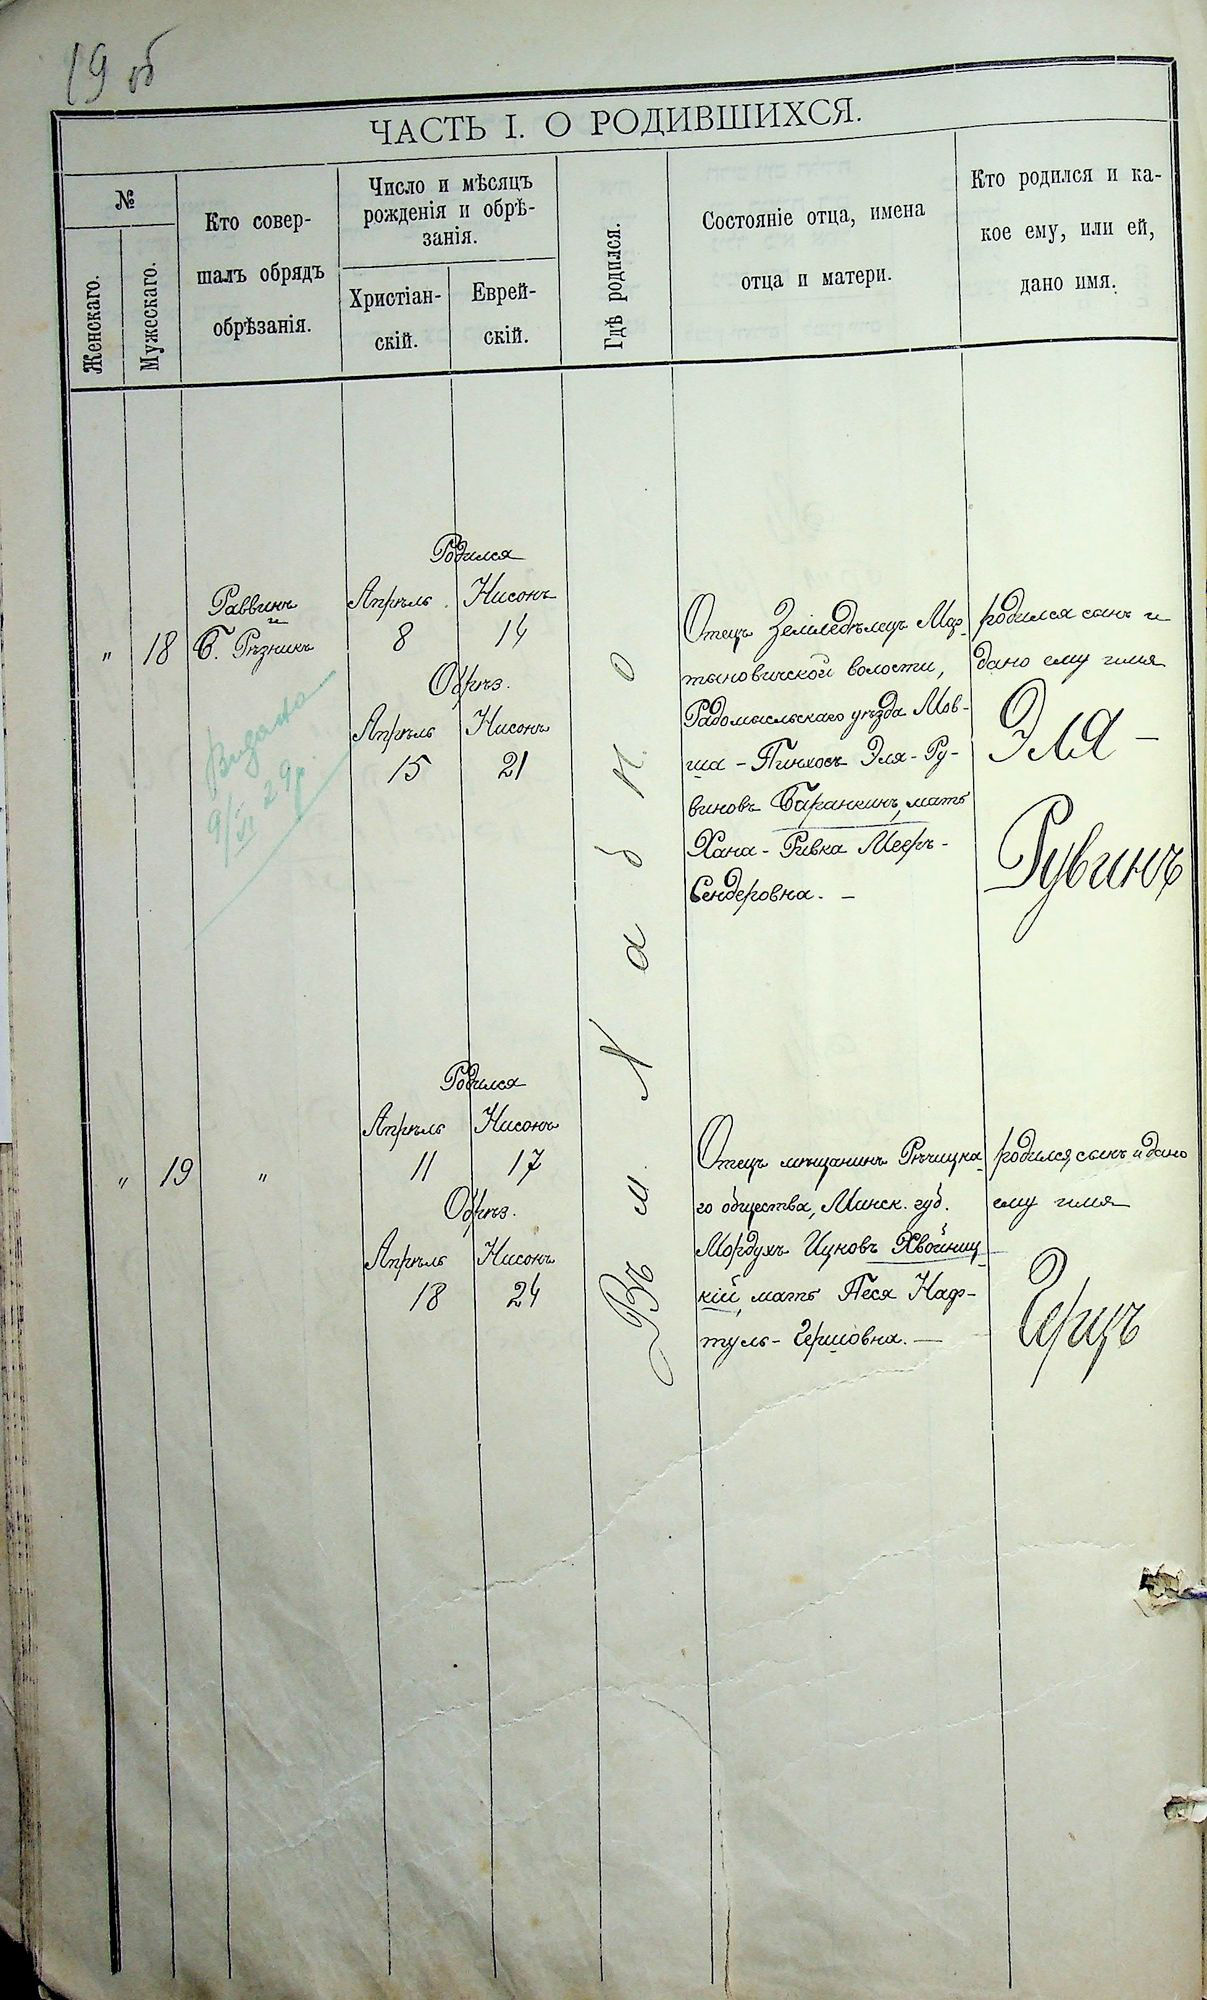 19 об
ЧАСТЬ I. О РОДИВШИХСЯ.
№
Женскаго.
Мужескаго.
Кто совер-
шалъ обрядъ
обрѣзанія.
Число и мѣсяцъ
рожденія и обрѣ-
занія.
Христіан-
скій.
Еврей-
скій.
Гдѣ родился.
Состояніе отца, имена
отца и матери.
Кто родился и ка-
кое ему, или ей,
дано имя.
" 18
Раввинъ
и
Б. Рѣзникъ
Видано
9/VI 29 р.
Родился
Апрѣль Нисонъ
8 14
Обрѣз.
Апрѣль Нисонъ
15 21
Въ м. Хабно
Отецъ Земледѣлецъ Мар-
тыновичской волости,
Радомысльскаго уѣзда Мов-
ша-Пинхосъ Эля-Ру-
виновъ Баранкинъ, мать
Хана-Ривка Мееръ-
Сендеровна. —
родился сынъ и
дано ему имя
Эля-
Рувинъ
" 19 "
Родился
Апрѣль Нисонъ
11 17
Обрѣз.
Апрѣль Нисонъ
18 24
Отецъ мѣщанинъ Рѣчицка-
го общества, Минск. губ.
Мордухъ Ицковъ Хвойниц-
кій, мать Песя Наф-
туль-Гершовна. —
родился сынъ и дано
ему имя
Герцъ